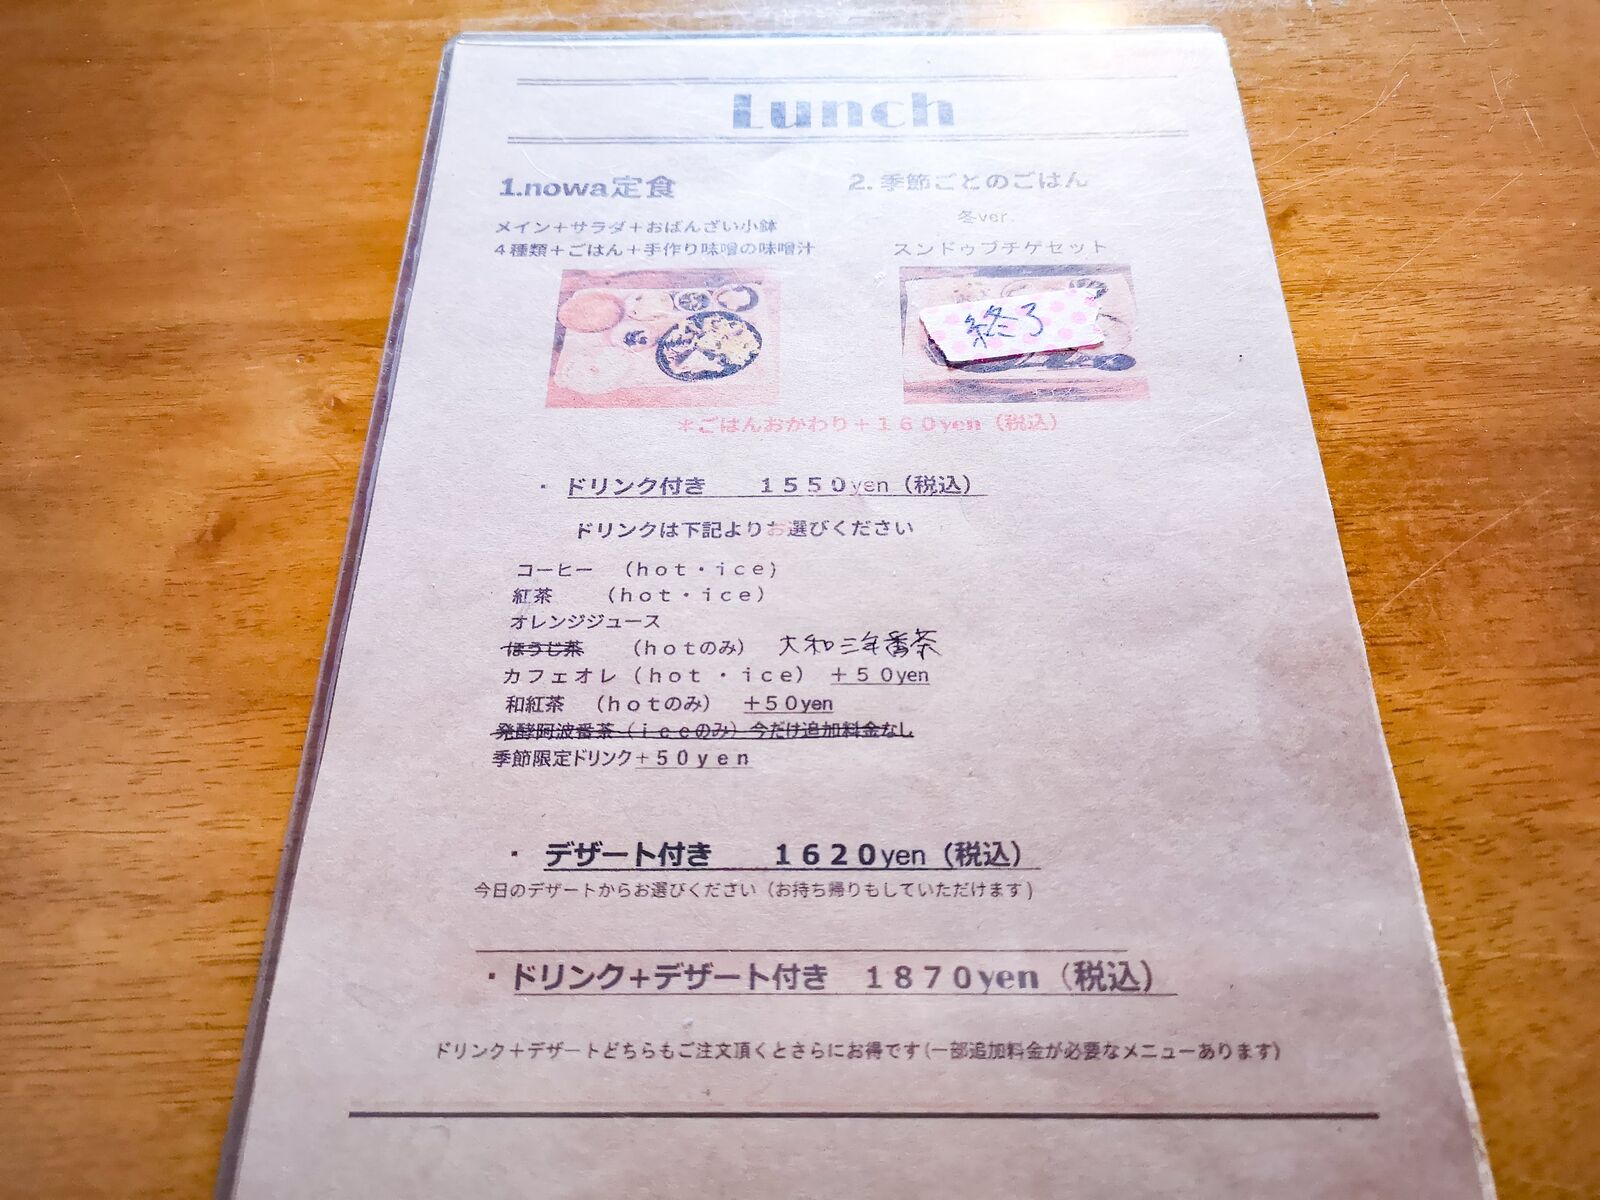 Lunch
1.nowa定食
メイン＋サラダ＋おばんざい小鉢
４種類＋ごはん＋手作り味噌の味噌汁
2. 季節ごとのごはん
冬ver.
スンドゥブチゲセット
終了
＊ごはんおかわり＋１６０yen（税込）
・ドリンク付き　１５５０yen（税込）
ドリンクは下記よりお選びください
コーヒー　（ｈｏｔ・ｉｃｅ）
紅茶　　（ｈｏｔ・ｉｃｅ）
オレンジジュース
ほうじ茶　　（ｈｏｔのみ）　大和三年番茶
カフェオレ（ｈｏｔ・ｉｃｅ）　＋５０yen
和紅茶　（ｈｏｔのみ）　＋５０yen
発酵阿波番茶（ｉｃｅのみ）今だけ追加料金なし
季節限定ドリンク＋５０ｙｅｎ
・デザート付き　１６２０yen（税込）
今日のデザートからお選びください（お持ち帰りもしていただけます）
・ドリンク＋デザート付き　１８７０yen（税込）
ドリンク＋デザートどちらもご注文頂くとさらにお得です（一部追加料金が必要なメニューあります）